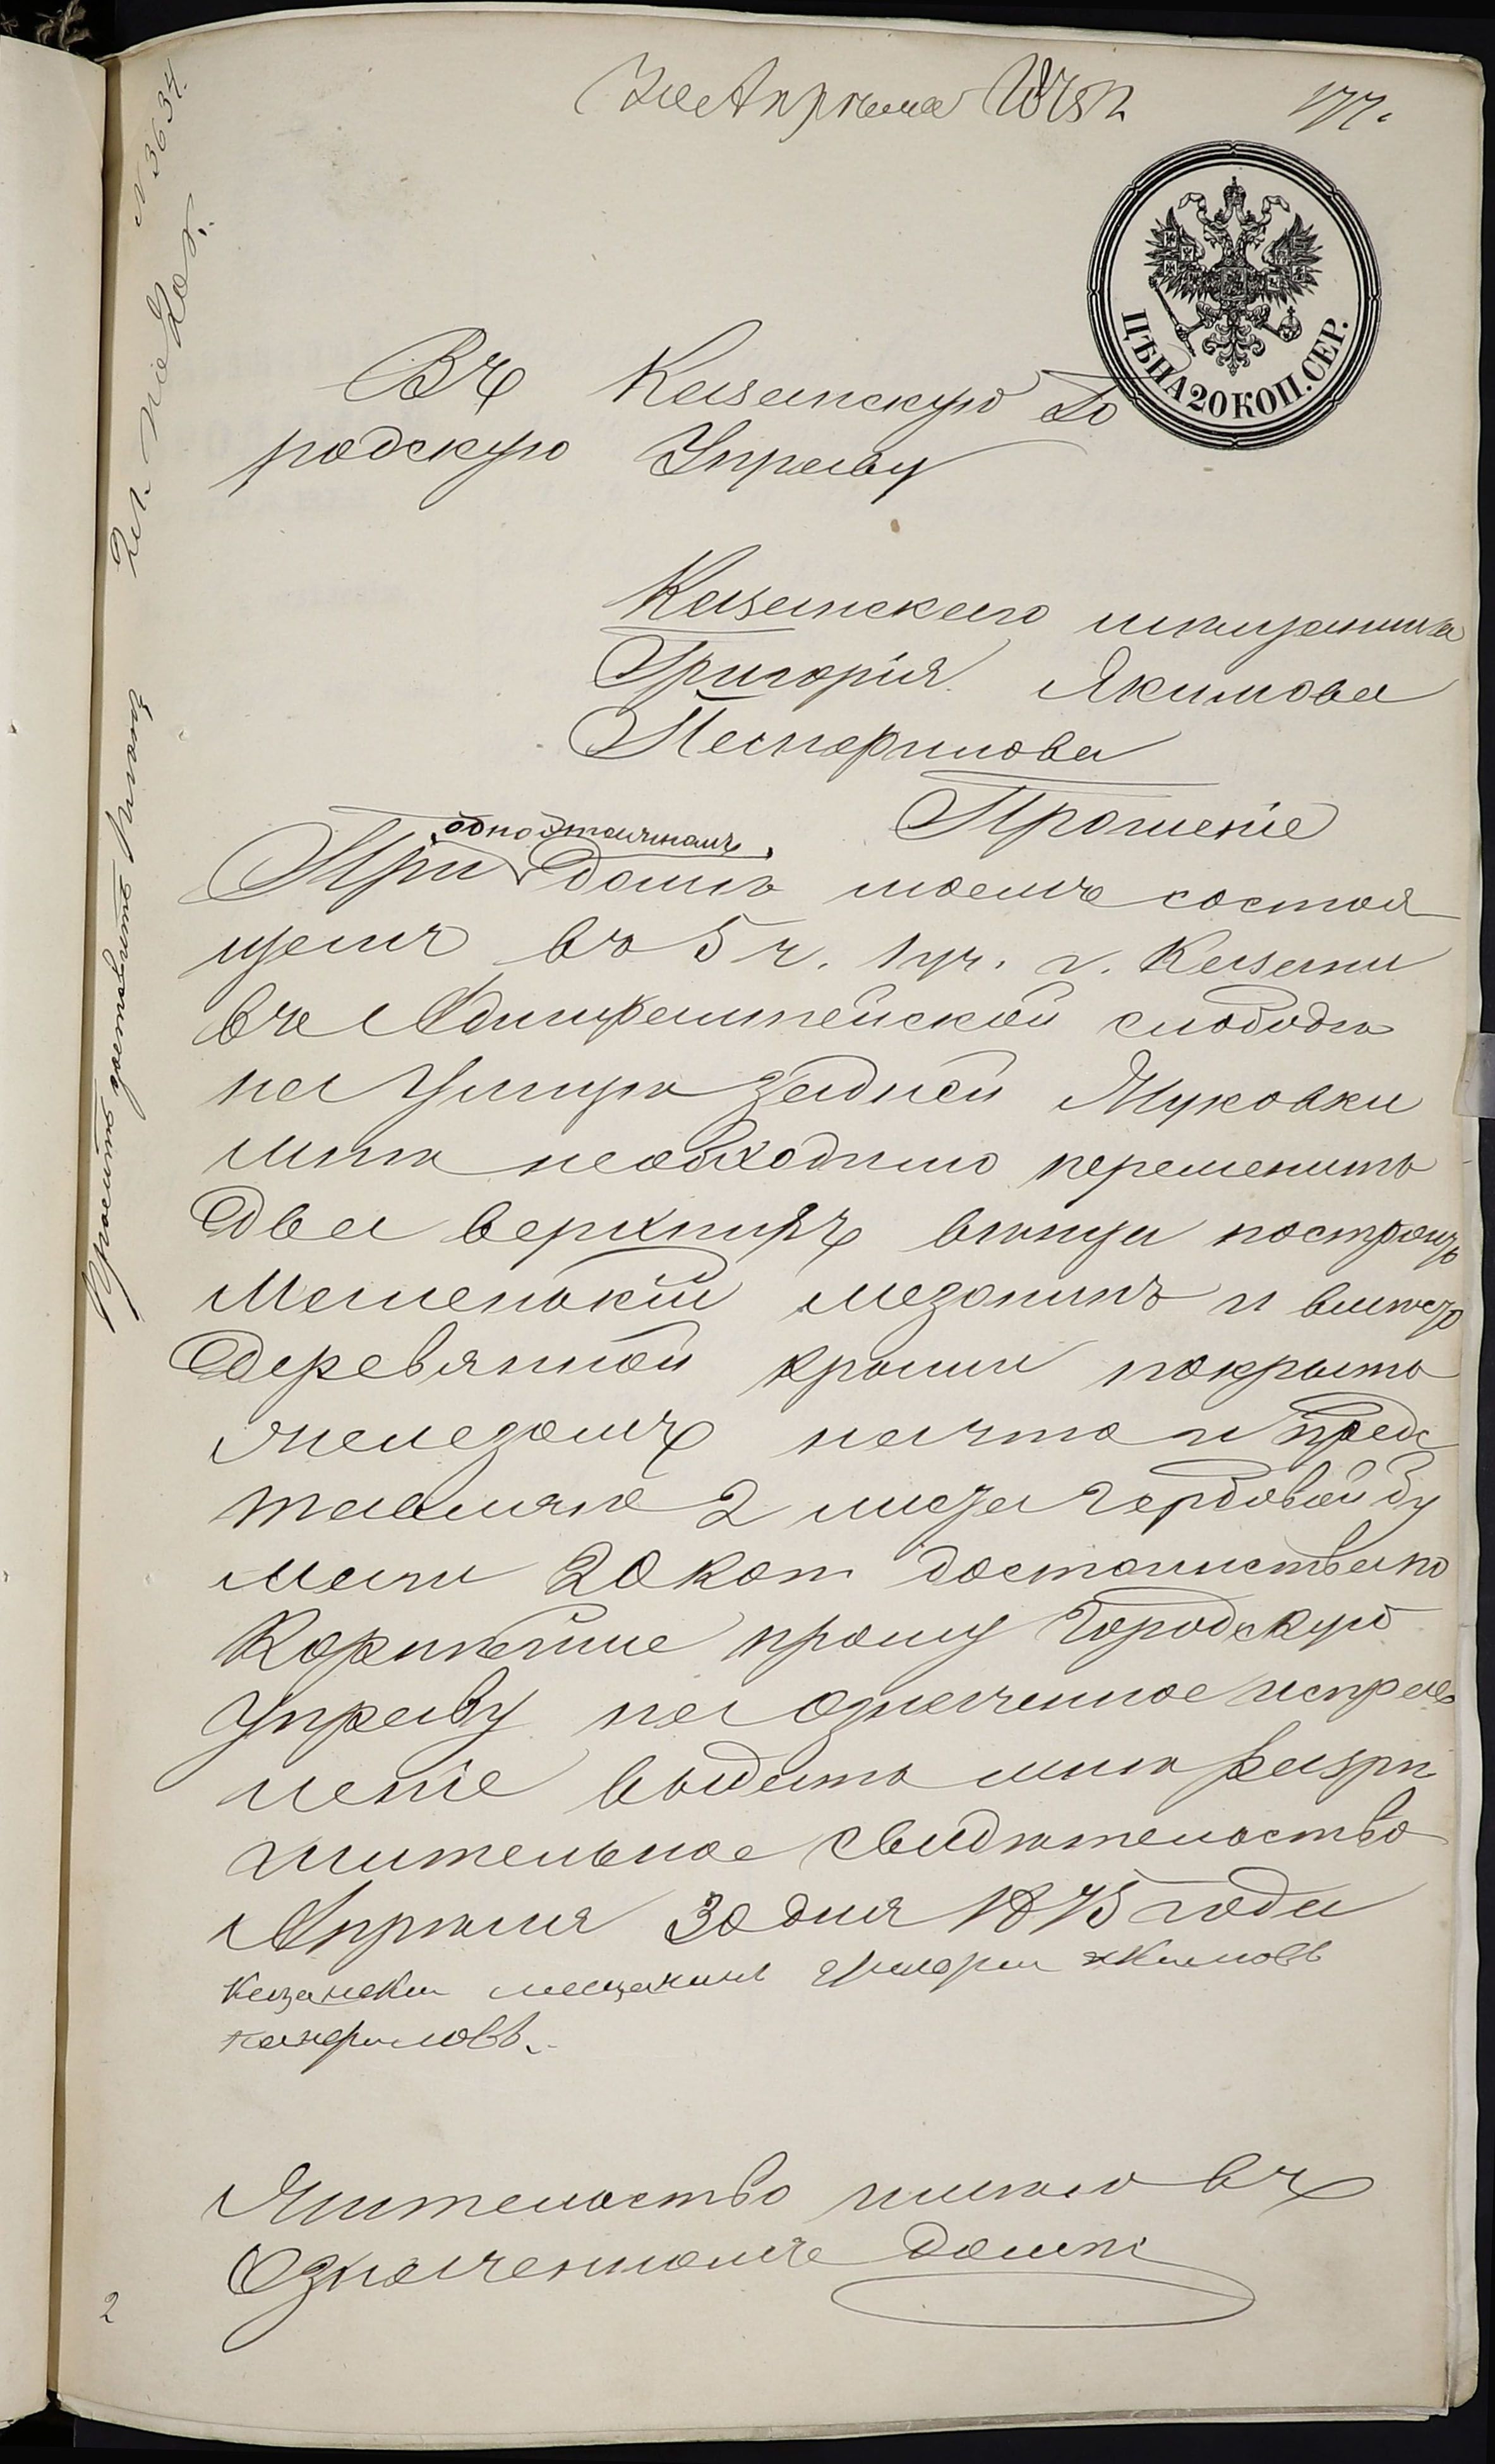 30 Апрѣля 1875 г.
177.
№ 3634.
ЦѢНА 20 КОП. СЕР.
Въ Казанскую Го
родскую Управу
Казанскаго мѣщанина
Григорія Якимова
Прошеніе
одноэтажномъ
При домѣ моемъ состоя
щемъ въ 5 ч. 1 уч. г. Казани
въ Адмиралтейской слободѣ
на улицѣ задней Жуковки
мнѣ необходимо переменить
два верхнихъ вѣнца построить
маленькій мезонинъ и вместо
деревянной крыши покрыть
железомъ на что и предс
тавляя 2 листа гербовой бу
маги 20 коп достоинства по
Корнѣйше прошу Городскую
Управу на означенное исправ
леніе выдать мнѣ разрѣ
шительное свидѣтельство
Апрѣля 30 дня 1875 года
казански мещанинъ григори якимовъ
Жительство имѣю въ
Означенномъ домѣ
Проситъ
планъ
2